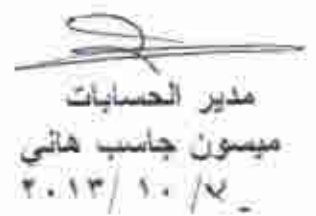 مدير الحسابات
ميسون جاسب هاني
٢٠١٣/ ١٠ /٧